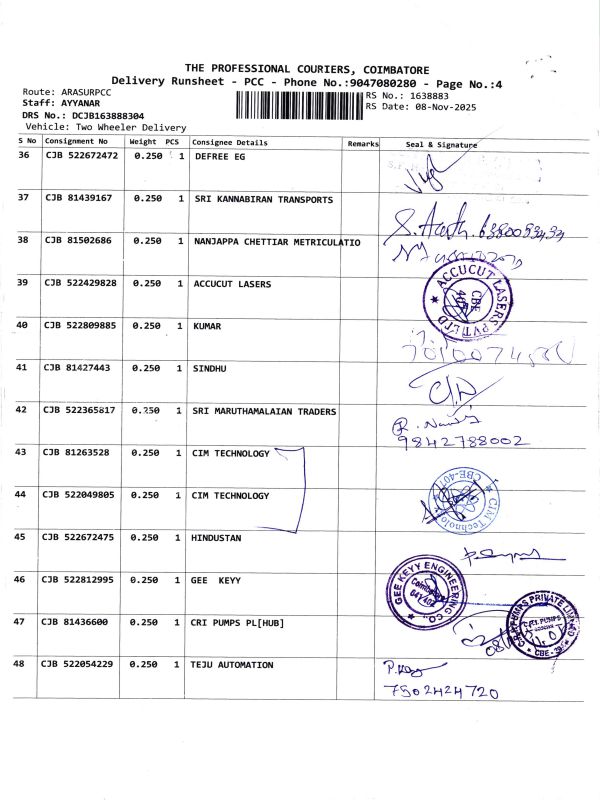 THE PROFESSIONAL COURIERS, COIMBATORE
Delivery Runsheet - PCC - Phone No.:9047080280 - Page No.:4
Route: ARASURPCC
Staff: AYYANAR
DRS No.: DCJB163888304
Vehicle: Two Wheeler Delivery
RS No.: 1638883
RS Date: 08-Nov-2025
S No Consignment No Weight PCS Consignee Details Remarks Seal & Signature
36 CJB 522672472 0.250 1 DEFREE EG
37 CJB 81439167 0.250 1 SRI KANNABIRAN TRANSPORTS
38 CJB 81502686 0.250 1 NANJAPPA CHETTIAR METRICULATIO
39 CJB 522429828 0.250 1 ACCUCUT LASERS
ACCUCUT LASERS PVT LTD
CBE
407
40 CJB 522809885 0.250 1 KUMAR
41 CJB 81427443 0.250 1 SINDHU
42 CJB 522365817 0.250 1 SRI MARUTHAMALAIAN TRADERS
9842788002
43 CJB 81263528 0.250 1 CIM TECHNOLOGY
44 CJB 522049805 0.250 1 CIM TECHNOLOGY
CIM Technology
CBE-407
45 CJB 522672475 0.250 1 HINDUSTAN
46 CJB 522812995 0.250 1 GEE KEYY
GEE KEYY ENGINEERING CO.,
Coimbatore
641 402
47 CJB 81436600 0.250 1 CRI PUMPS PL[HUB]
C.R.I. PUMPS PRIVATE LIMITED
48 CJB 522054229 0.250 1 TEJU AUTOMATION
7502424720